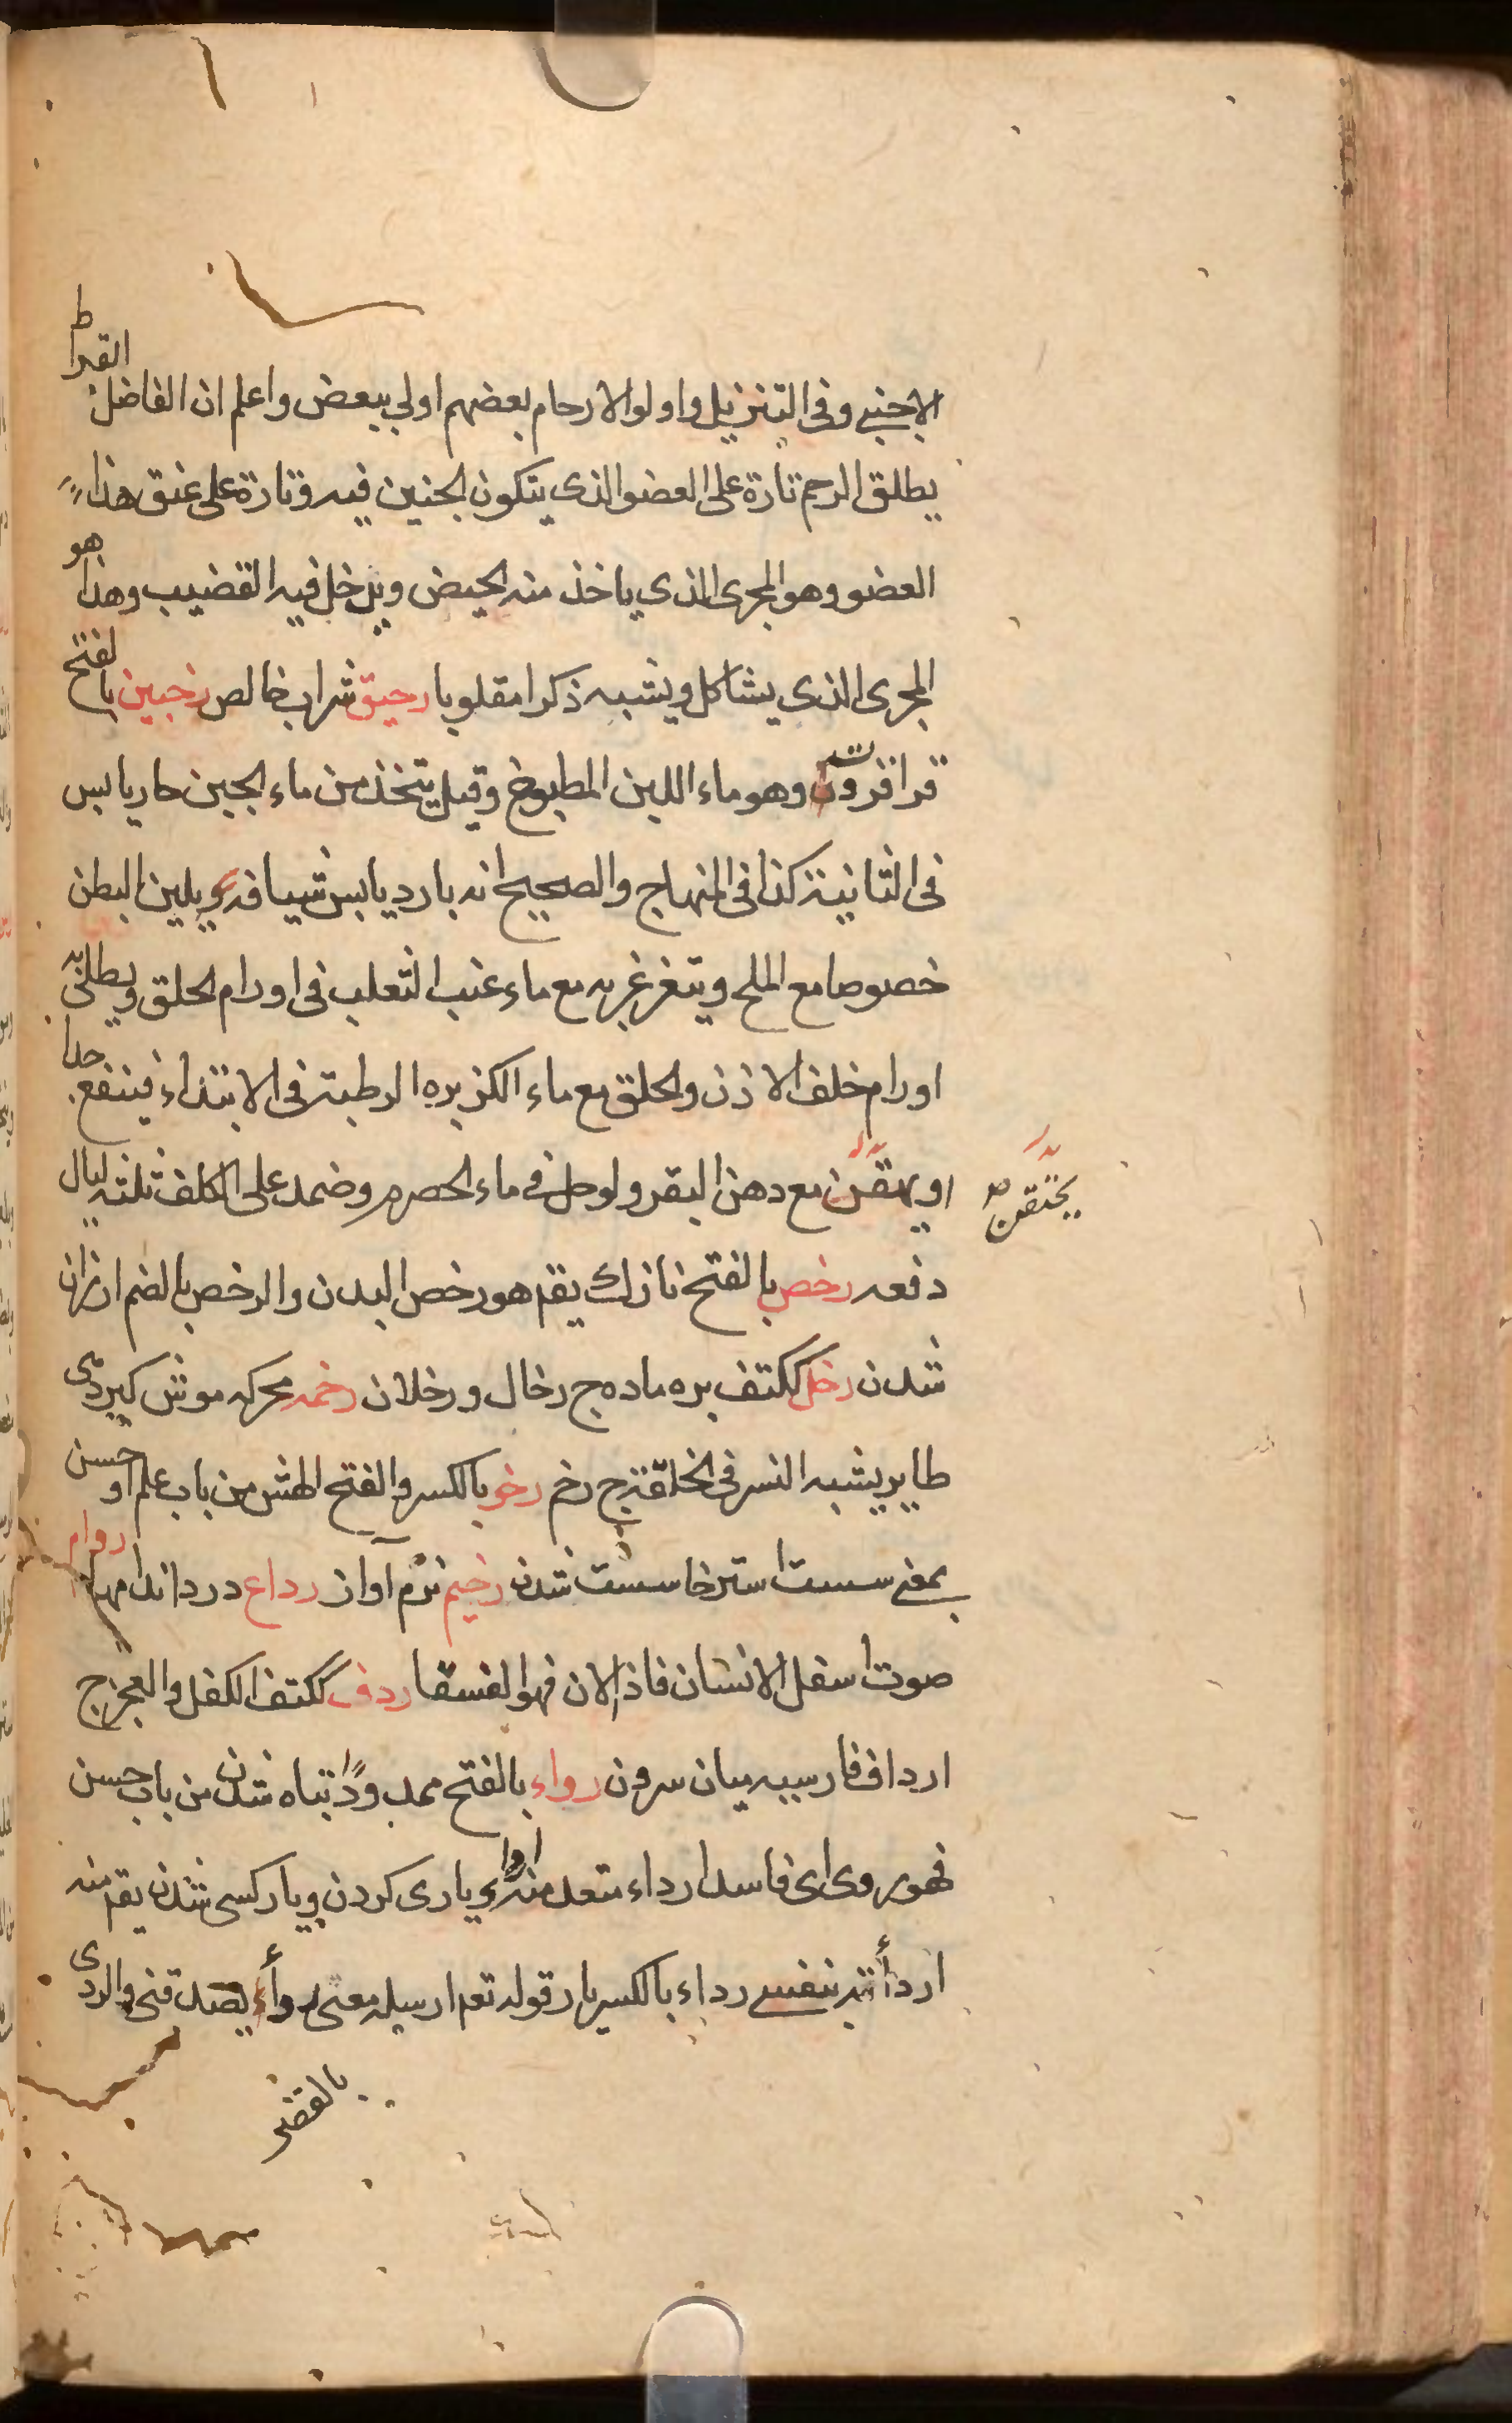 الاجنبي وفي التنزيل واولوا الارحام بعضهم اولي ببعض واعلم ان الفاضل القراط
يطلق الرحم تارة على العضو الذي يتكون الجنين فيه وتارة على عنق هذا
العضو وهو المجرى الذي ياخذ منه الحيض ويدخل فيه القضيب وهذا هو
المجرى الذي يشاكل ويشبه ذكرا مقلوبا رحيق شراب خالص رخبين بالفتح
قراقروت وهو ماء اللبن المطبوخ وقيل يتخذ من ماء الجبن حار يابس
في الثانية كذا في المنهاج والصحيح انه بارد يابس شيافه ويلين البطن
خصوصا مع الملح ويتغرغر به مع ماء عنب الثعلب في اورام الحلق ويطلى به
اورام خلف الاذن والحلق مع ماء الكزبره الرطبة في الابتداء فينفع جدا
او يحقن مع دهن البقر ولو حل في ماء الحصرم وضمد على الكلف ثلثة ليال
يحتقن
دفعه رخص بالفتح نازك يقم هو رخص البدن والرخص بالضم ارزان
شدن رخل ككتف بره ماده ج رخال ورخلان رخمه محركه موش كير وهي
طاير يشبه النسر في الخلقة ج رخم رخو بالكسر والفتح الهش من باب علم او حسن
بمعنى سست استرخا سست شدن رخيم نرم آواز رداع درد اندامها ردام
صوت اسفل الانسان فاذ الان فهو الفسقا ردف ككتف الكفل والعجز ج
ارداف فارسيه ميان سرون رداء بالفتح ممدودا تباه شدن من باب حسن
فهو ردى اى فاسد ارداء متعد منه ويارى كردن ويار كسى شدن يقم منه
اردأته بنفسي رداء بالكسر يار قوله تعم ارسله معى ردأ يصدقنى والردى
بالفتح